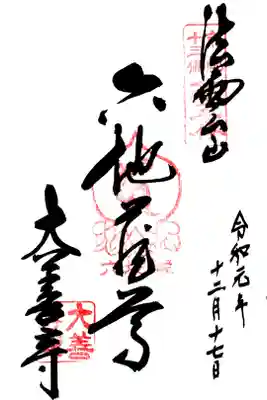 法雲山
六地蔵尊
大善寺
令和元年
十二月十七日
大善